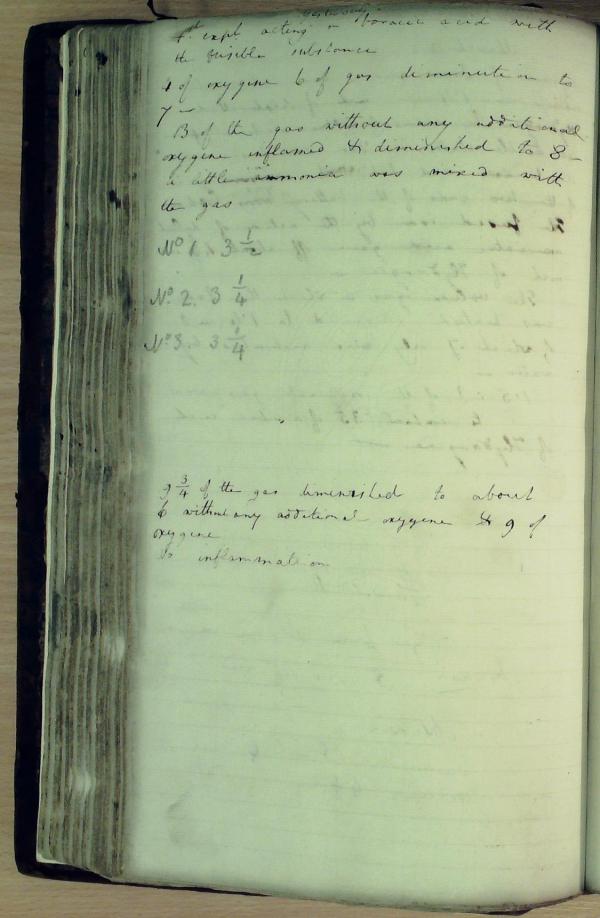 yesterday's
4th expt acting on boracic acid with
the fusible substance
4 of oxygene 6 of gas diminution to
7 —
13 of the gas without any additional
oxygene inflamed & diminished to 8 —
a little ammonia was mixed with
the gas
No 1. 3 1/2
No. 2. 3 1/4
No 3. 3 1/4
9 3/4 of the gas diminished to about
6 without any additional oxygene & 9 of
oxygene
inflammation